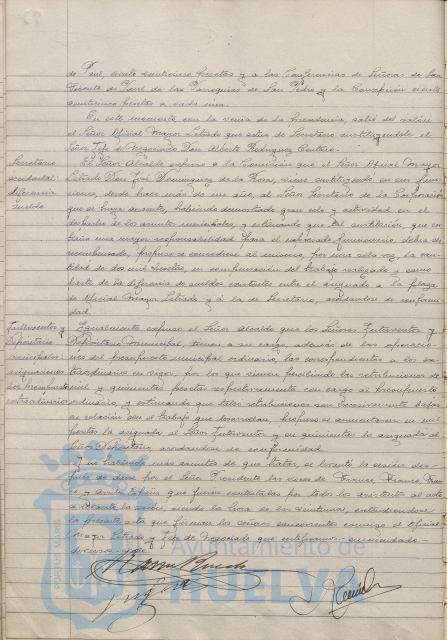 de Paul, ciento veinticinco pesetas y a las Conferencias de Señoras de San
Vicente de Paul de las Parroquias de San Pedro y la Concepción ciento
veinticinco pesetas a cada una.
En este momento con la venia de la Presidencia, salió del salón
el Señor Oficial Mayor Letrado que actúa de Secretario sustituyéndole el
Señor Jefe de Negociado Don Alberto Rodríguez
Secretario accidental: diferencia sueldo
El Señor Alcalde expuso a la Comisión que el Señor Oficial Mayor
Letrado Don José Domínguez de la Rosa, viene sustituyendo en sus fun-
ciones, desde hace más de un año, al Señor Secretario de la Corporación
que se haya vacante, habiendo demostrado gran celo y actividad en el
despacho de los asuntos municipales, y estimando que tal sustitución, que en-
traña una mayor responsabilidad para el expresado funcionario, debía de
recompensarse, propuso se concediese al mismo, por una sola vez, la can-
tidad de dos mil pesetas, en compensación del trabajo realizado y como
parte de la diferencia de sueldos existente entre el asignado a la plaza
de Oficial Mayor Letrado y a la de Secretario, acordándose de conformi-
dad.
Interventor y Depositario municipales: asignaciones de Presupuesto extraordinario
Igualmente expuso el Señor Alcalde que los Señores Interventor y
Depositario municipal, tienen a su cargo, además de las operacio-
nes del presupuesto municipal ordinario, las correspondientes a los ex-
traordinarios en vigor, por lo que vienen percibiendo las retribuciones de
mil y quinientas pesetas respectivamente con cargo al Presupuesto
ordinario, y estimando que tales retribuciones son excesivamente bajas
en relación con el trabajo que desarrollan, propuso se aumentaran en mil
pesetas la asignada al Señor Interventor y en quinientas la asignada al
Señor Depositario, acordándose de conformidad.
Y no habiendo más asuntos de que tratar, se levantó la sesión des-
pués de darse por el Señor Presidente las voces de Franco, Franco, Fran-
co y Arriba España que fueron contestadas por todos los asistentes al acto
la presente acta que firman los señores concurrentes conmigo el Oficial
Mayor Letrado y Jefe de Negociado que certificamos.-
Ayuntamiento de
HUELVA